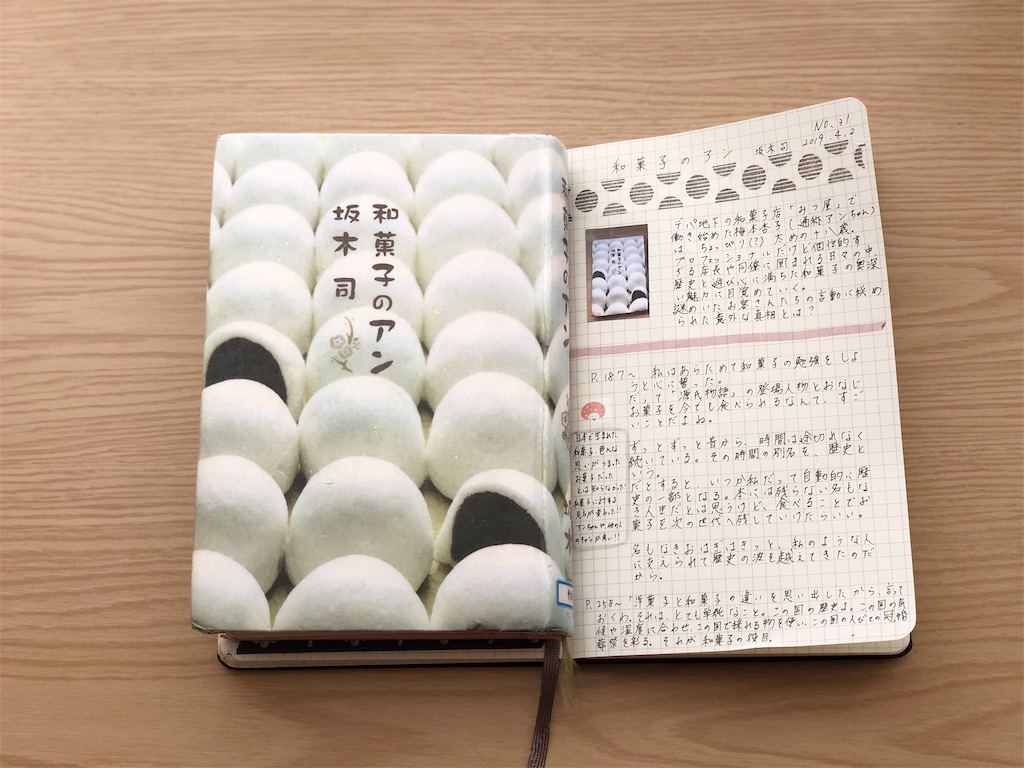 和菓子のアン
坂木 司
No.31
2019.4.2
和菓子のアン 坂木司
デパ地下の和菓子店「みつ屋」で
働き始めた梅本杏子(通称アンちゃん)
は、ちょっぴり(?)太めの十八歳。
プロフェッショナルだけど個性的す
ぎる店長や同僚に囲まれる日々の中、
歴史と遊び心に満ちた和菓子の奥深
い魅力に目覚めていく。
謎めいたお客さんたちの言動に秘め
られた意外な真相とは?
P.187~ 私はあらためて和菓子の勉強をしよ
うと心に誓った。
だって『源氏物語』の登場人物とおなじ
お菓子を今でも食べられるなんて、すご
いことだよね。
ずっとずっと昔から、時間は途切れなく
続いている。その時間の別名を、歴史と
いう。
だとすると、いつか私だって自動的に歴
史の一部となる。本には残らない名もな
き人生だとは思うけど、食べることでお
菓子を次の世代へ残していけたらいい。
名もなきおはぎはきっと、私のような人
に支えられて歴史の波を越えてきたのだ
から。
日本で生まれた
和菓子
お菓子だった
とは知らなかった
和菓子に対する
見方が変わった!!
P.258~「洋菓子と和菓子の違いを思い出したから言って
おくわ。それは、とても単純なこと。この国の歴史よ。この国の気
候や湿度に合わせこの国で採れる物を使い、この国の人びとの冠婚
葬祭を彩る。それが和菓子の役目。